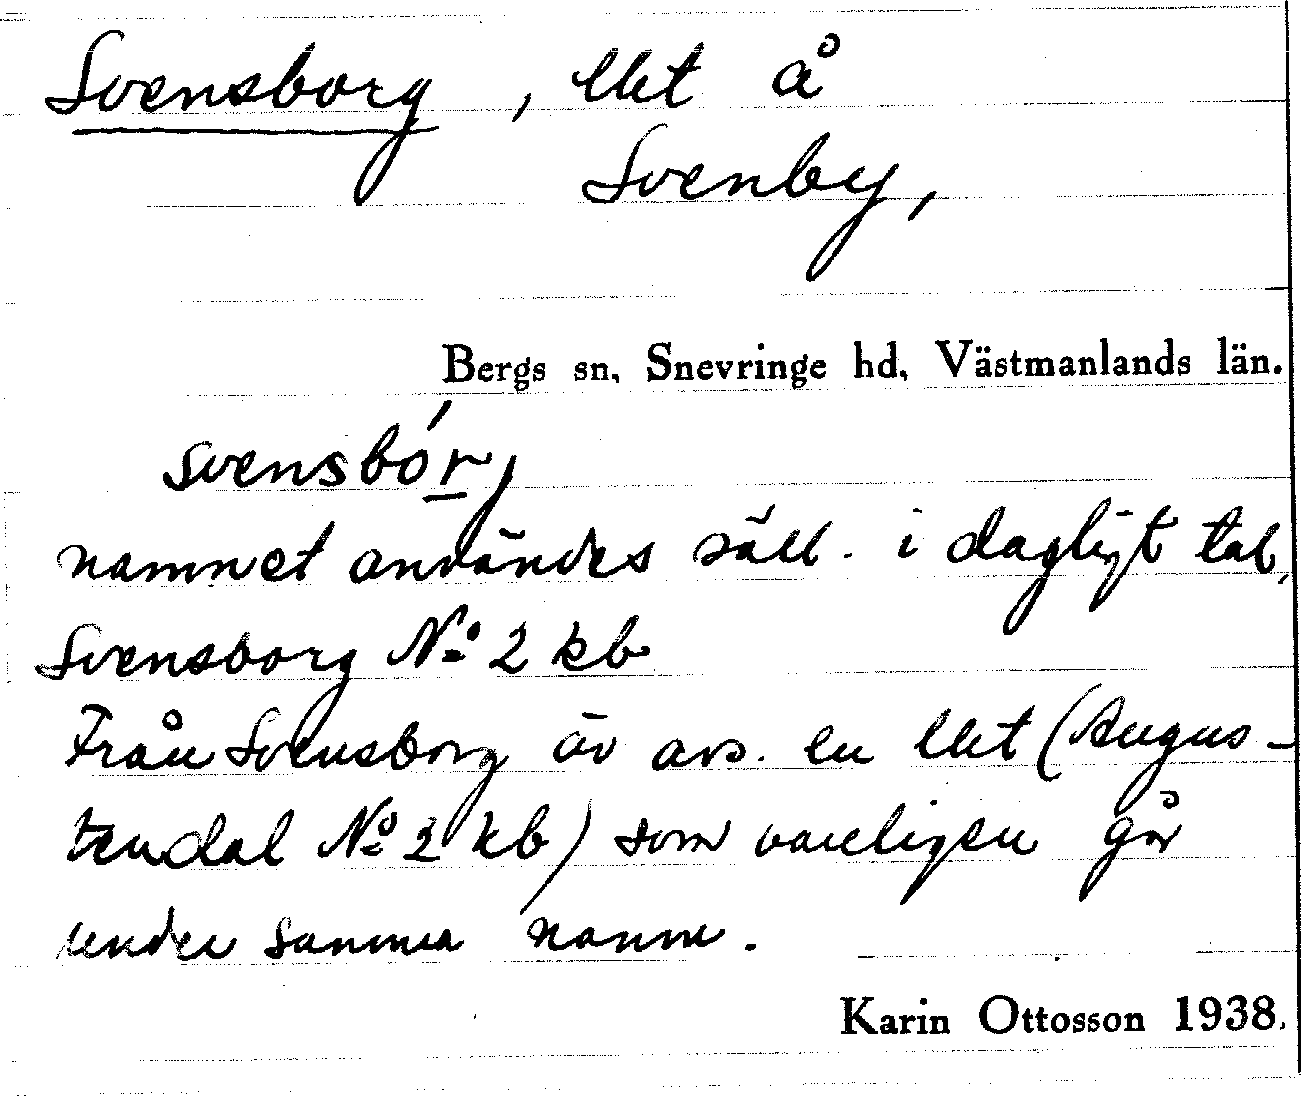 Svensborg, lht å
Svenby,
Bergs sn, Snevringe hd, Västmanlands län.
svensbór,
namnet användes säll. i dagligt tal,
Svensborg No 2 kb
Från Svensborg är avs. en lht (Augus-
tendal No 2 kb) som vanligen går
under samma namn.
Karin Ottosson 1938.